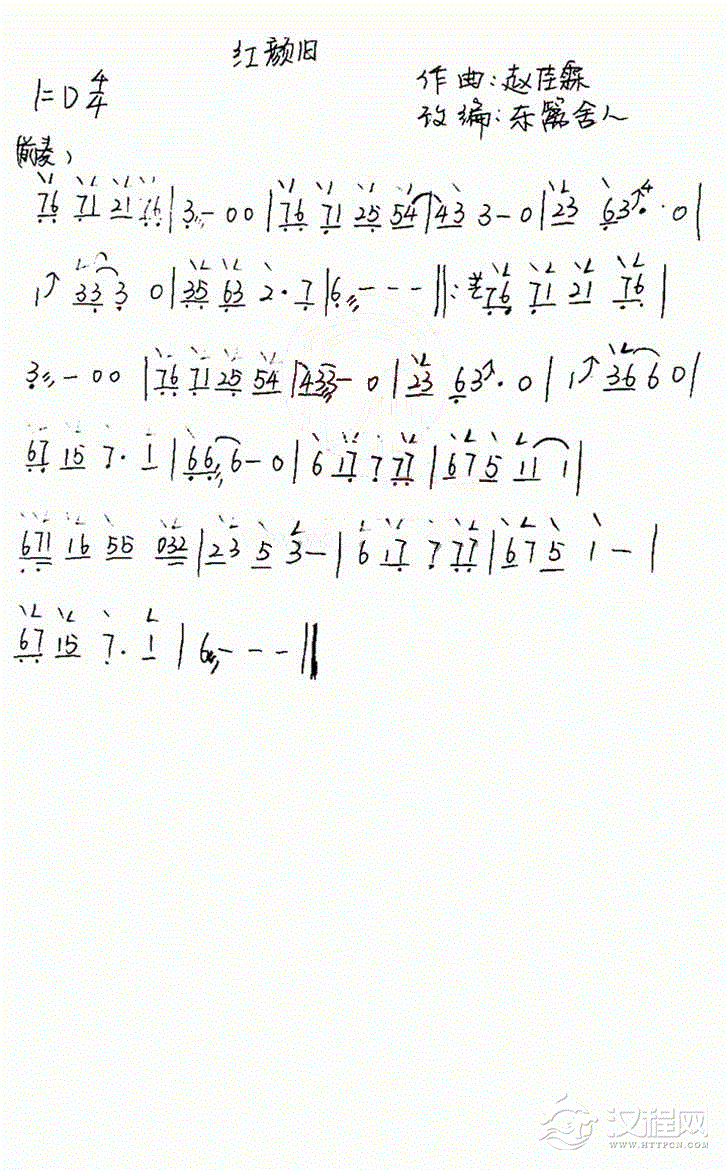 红颜旧
1=D 4/4
作曲:赵佳霖
改编:东篱舍人
(前奏)
76 71 21 76 | 3 - 0 0 | 76 71 25 54 | 43 3 - 0 | 23 63 · 0 |
1 33 3 0 | 35 63 2 · 7 | 6 - - - ‖: 76 71 21 76 |
3 - 0 0 | 76 71 25 54 | 433 - 0 | 23 63 · 0 | 1 36 6 0 |
67 15 7 · 1 | 66 6 - 0 | 6 17 7 77 | 67 5 11 1 |
671 16 55 032 | 23 5 3 - | 6 17 7 77 | 67 5 1 - |
67 15 7 · 1 | 6 - - - ‖
汉程网
HTTPCN.COM